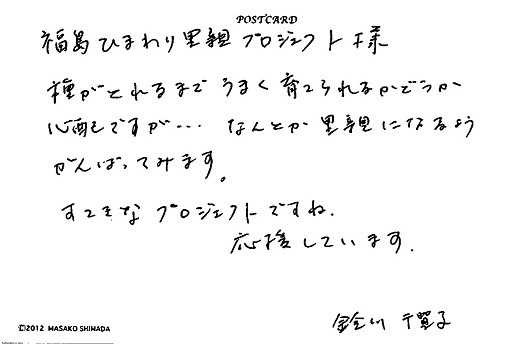 POSTCARD
福島ひまわり里親プロジェクト様
種がとれるまで うまく育てられるかどうか
心配ですが… なんとか里親になるよう
がんばってみます。
すてきなプロジェクトですね.
応援しています.
©2012 MASAKO SHIMADA